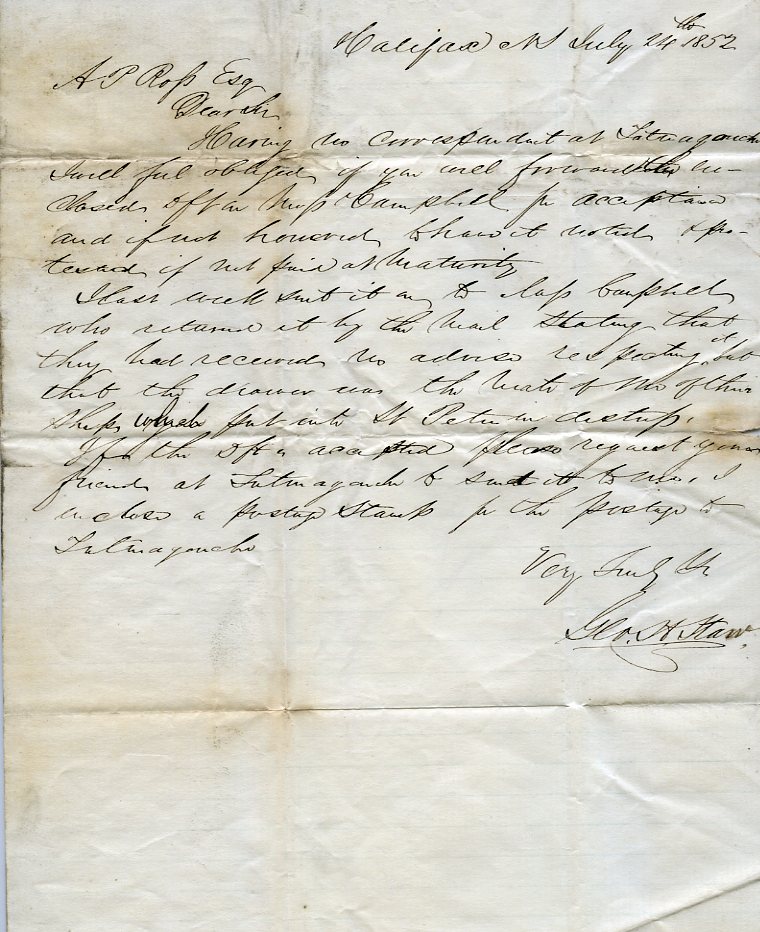 Halifax NS July 24th 1852
A P Ross Esq
Dear Sir
Having no correspondent at Tatmagouche
I will feel obliged if you will forward the en-
closed Dft on Mess Campbell for acceptance
and if not honored to have it noted & pro-
tested if not paid at Maturity
I last week sent it on to Mess Campbell
who returned it by the Mail stating that
they had received no advise respecting it but
that the drawer was the Mate of one of their
Ships which put into St Peter in distress.
If the Dft is accepted please request your
friend at Tatmagouche to send it to me, I
enclose a postage stamp for the postage to
Tatmagouche
Very Truly Yr
Geo. H Starr